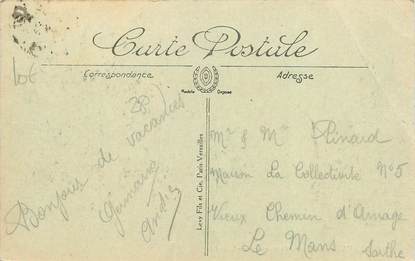 Carte Postale
Correspondance
Adresse
Modèle Déposé
Lot
28
Bonjour de vacances
Germaine
André
Levy Fils et Cie, Paris-Versailles
Mr & Mme Plinard
Maison La Collectivité N°5
Vieux Chemin d'Arnage
Le Mans
Sarthe